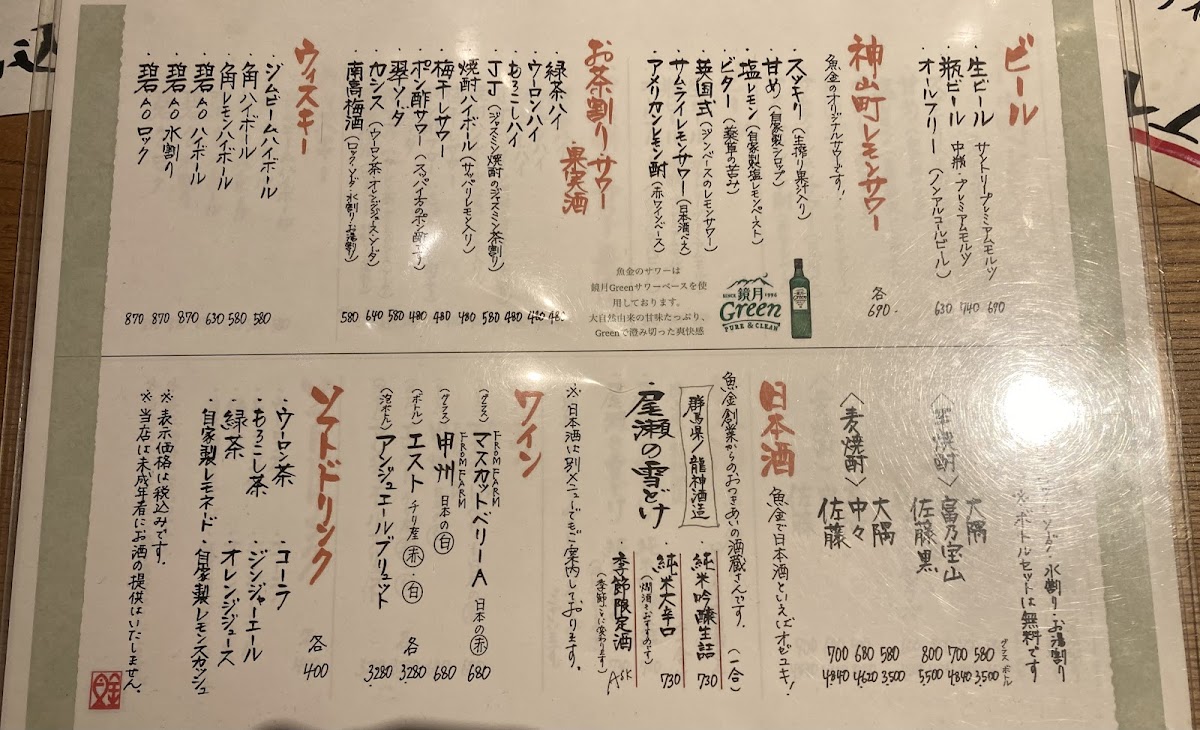 ビール
・生ビール サントリープレミアムモルツ 690
・瓶ビール 中瓶 プレミアムモルツ 740
・オールフリー (ノンアルコールビール) 630
神山町レモンサワー
魚金のオリジナルサワーです! 各690-
・スッキリ (生搾り果汁入り)
・甘め (自家製シロップ)
・塩レモン (自家製塩レモンペースト)
・ビター (薬草の苦み)
・英国式 (ジンベースのレモンサワー)
・サムライレモンサワー (日本酒ベース)
・アメリカンレモン酎 (赤ワインベース)
魚金のサワーは
鏡月Greenサワーベースを使
用しております。
大自然由来の甘味たっぷり、
Greenで澄み切った爽快感
SINCE 鏡月 1996
Green
PURE & CLEAN
お茶割りサワー
果実酒
・緑茶ハイ 480
・ウーロンハイ 480
・もろこしハイ 480
・JJ (ジャスミン焼酎のジャスミン茶割り) 580
・焼酎ハイボール (サッパリレモン入り) 480
・梅干しサワー 480
・ポン酢サワー (スッパイ方のポン酢です) 480
・翠ソーダ 580
・カシス (ウーロン茶・オレンジジュース・ソーダ) 640
・南高梅酒 (ロック・ソーダ・水割り・お湯割り) 580
ウィスキー
・ジムビームハイボール 580
・角ハイボール 580
・角レモンハイボール 630
・碧Aoハイボール 870
・碧Ao水割り 870
・碧Aoロック 870
ソーダ・水割り・お湯割り
※ボトルセットは無料です
グラス ボトル
大隅 580 3,500
富乃宝山 700 4,840
佐藤黒 800 5,500
〈麦焼酎〉
大隅 580 3,500
中々 680 4,620
佐藤 700 4,840
日本酒 魚金で日本酒といえばオゼユキ!
魚金創業からのおつきあいの酒蔵さんです。
群馬県/龍神酒造
・尾瀬の雪どけ
(一合)
純米吟醸生詰 730
純米大辛口 730
(燗酒もおすすめです)
季節限定酒 ASK
(季節ごとに変わります)
※日本酒は別メニューでもご案内しております。
ワイン
(グラス) FROM FARM マスカットベリーA 日本の赤 680
(グラス) FROM FARM 甲州 日本の白 680
(ボトル) エスト チリ産 赤・白 各3,280
(泡ボトル) アンジュエールブリュット 3,280
ソフトドリンク 各400
・ウーロン茶 ・コーラ
・もろこし茶 ・ジンジャーエール
・緑茶 ・オレンジジュース
・自家製レモネード ・自家製レモンスカッシュ
※表示価格は税込みです。
※当店は未成年者にお酒の提供はいたしません。